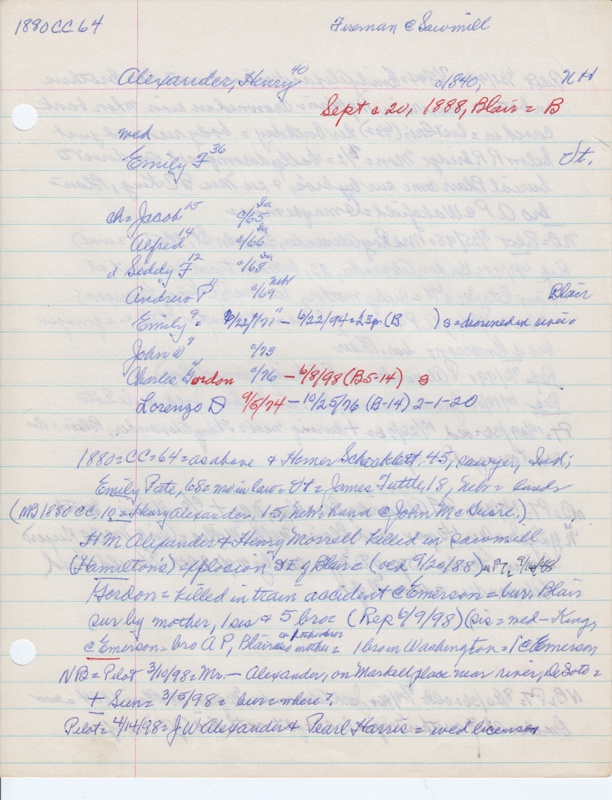 1880 CC 64 Fireman @ Sawmill
Alexander, Henry 40 c/1840, NH
Sept c 20, 1888, Blair = B
wed
Emily F 36 Vt.
ch = Jacob 15 c/65 Ia
Alfred 14 c/66 Ia
d Siddy F 12 c/68 Ia
Andrew P 11 c/69 Nebr Blair
Emily 9 = /71 - 6/22/94 = 23 yr (B ) s = drowned in river =
John W 7 c/73
Charles Gordon 4 c/76 - 6/8/98 (B5-14) s
Lorenzo D 9/5/74 - 10/25/76 (B-14) 2-1-20
1880 = CC = 64 = as above & Homer 45, sawyer, Ind;
Emily Pate, 68 = mo in law = Vt = James Tuttle 18, Nebr = hands
(NB 1880 CC 12 = Henry Alexander, 15, Nebr, hand @ John McGuire.)
H M Alexander & Henry Morrell killed in sawmill
(Hamiltons) explosion g Blair = (ved 9/20/88) = Pt,
Gordon = killed in train accident @ Emerson = bur, Blair
sur by mother, 1 sis & 5 bro = (Rep 6/9/98) (sis = wed = King
@ Emerson = bro A P, Blair & mother = 1 bro in Washington = 1 @ Emerson
NB = Pilot 3/10/98 = Mr. - Alexander, on Markell place near river, DeSoto =
+ Sun = 3/5/98 = bur = where?
Pilot = 4/14/98 = J W Alexander & Pearl Harris = wed license